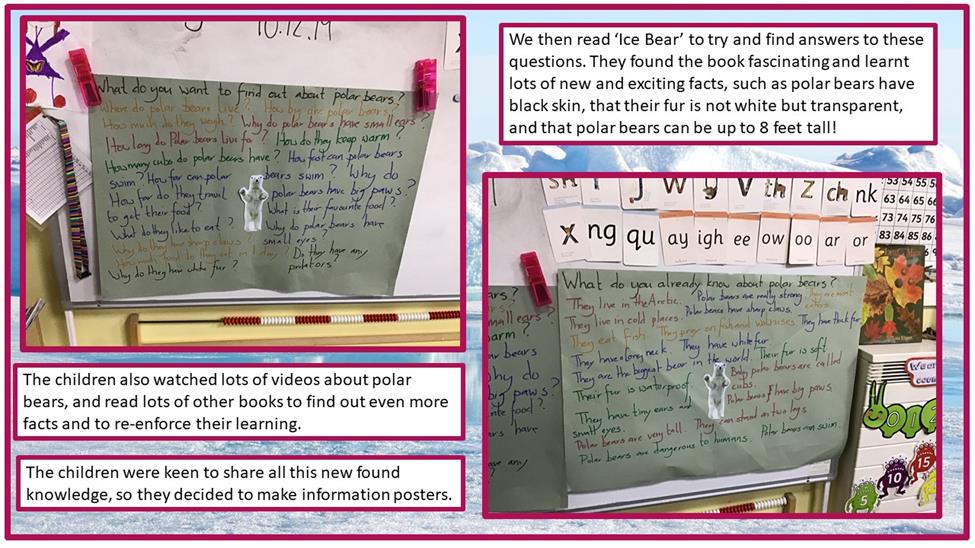 10.12.19
What do you want to find out about polar bears?
Where do polar bears live? How big are polar bears?
How much do they weigh? Why do polar bears have small ears?
How long do Polar bears live for? How do they keep warm?
How many cubs do polar bears have? How fast can polar bears
swim? How far can polar bears swim? Why do
How far do they travel polar bears have big paws?
to get their food? What is their favourite food?
What do they like to eat? Why do polar bears have
small eyes?
Why do they have sharp claws?
How much food do they eat in 1 day? Do they have any
Why do they have white fur? predators
We then read ‘Ice Bear’ to try and find answers to these
questions. They found the book fascinating and learnt
lots of new and exciting facts, such as polar bears have
black skin, that their fur is not white but transparent,
and that polar bears can be up to 8 feet tall!
j w y v th z ch nk
x ng qu ay igh ee ow oo ar or
53 54 55 56
63 64 65 66
73 74 75 76
83 84 85 86
What do you already know about polar bears?
They live in the Arctic. Polar bears are really strong They are meat eaters
They live in cold places. Polar bears have sharp claws.
They eat fish. They prey on fish and walruses They have thick fur
They have a long neck. They have white fur
They are the biggest bear in the world. Their fur is soft
Their fur is waterproof. Baby polar bears are called
cubs.
Polar bears have big paws.
They have tiny ears and
small eyes. They can stand on two legs
Polar bears are very tall.
Polar bears are dangerous to humans. Polar bears can swim.
5 10 15
The children also watched lots of videos about polar
bears, and read lots of other books to find out even more
facts and to re-enforce their learning.
The children were keen to share all this new found
knowledge, so they decided to make information posters.